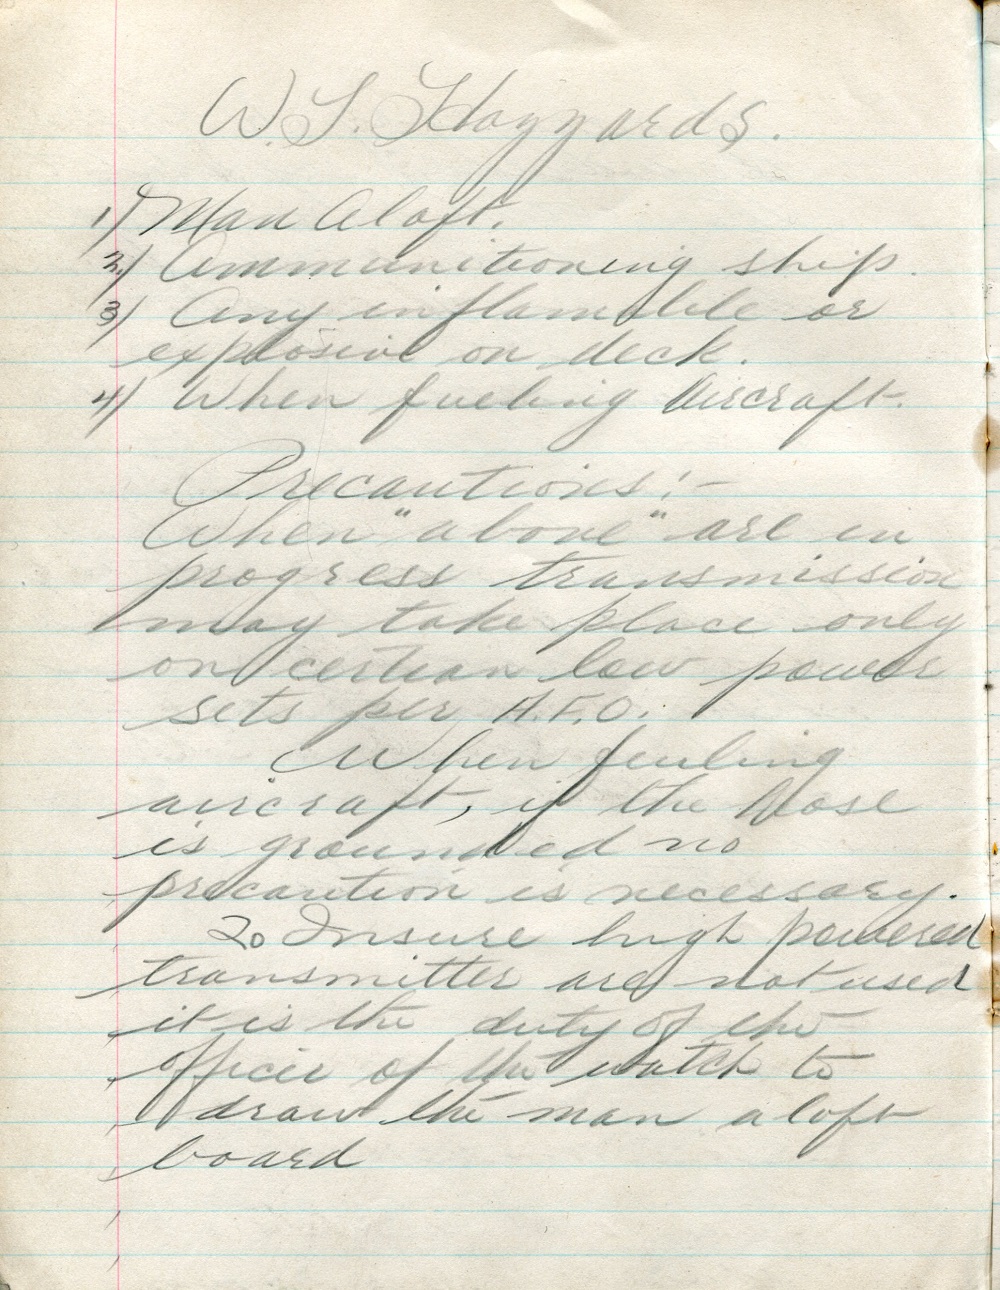 W.T. Hazzards.
1) Man Aloft.
2) Ammunitioning ship.
3) Any inflamable or
explosive on deck.
4) When fueling Aircraft.
Precautions:-
When "above" are in
progress transmission
may take place only
on certian low power
sets per A.F.O.
When feuling
aircraft, if the Nose
is grounded no
precaution is necessary.
To Insure high powered
transmitter are not used
it is the duty of the
officer of the watch to
draw the man aloft
board